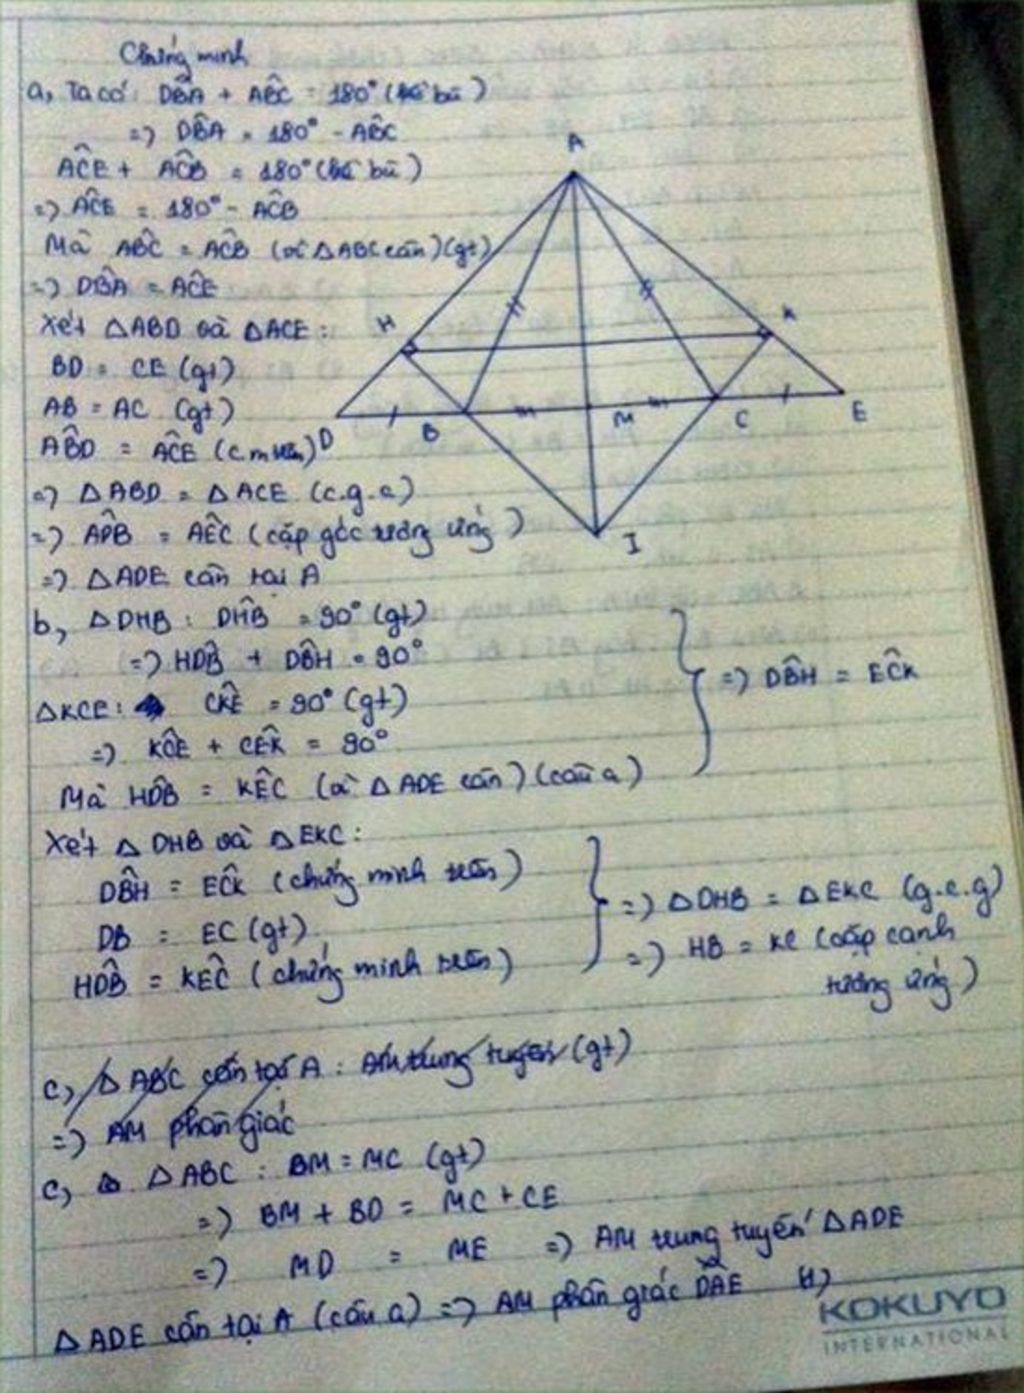 Chứng minh
a, Ta có: DB̂A + AB̂C = 180° (kề bù)
=> DB̂A = 180° - AB̂C
AĈE + AĈB = 180° (kề bù)
=> AĈE = 180° - AĈB
Mà AB̂C = AĈB (vì △ABC cân) (gt)
=> DB̂A = AĈE
Xét △ABD và △ACE:
BD = CE (gt)
AB = AC (gt)
AB̂D = AĈE (c.m trên)
=> △ABD = △ACE (c.g.c)
=> AD̂B = AÊC (cặp góc tương ứng)
=> △ADE cân tại A
A
H
K
D
B
M
C
E
I
b, △DHB: DĤB = 90° (gt)
=> HD̂B + DB̂H = 90°
△KCE: CK̂E = 90° (gt)
=> KĈE + CÊK = 90°
Mà HD̂B = KÊC (vì △ADE cân) (câu a)
=> DB̂H = EĈK
Xét △DHB và △EKC:
DB̂H = EĈK (chứng minh trên)
DB = EC (gt)
HD̂B = KÊC (chứng minh trên)
=> △DHB = △EKC (g.c.g)
=> HB = KC (cặp cạnh
tương ứng)
c, △ABC cân tại A: AM trung tuyến (gt)
=> AM phân giác
c, △ABC: BM = MC (gt)
=> BM + BD = MC + CE
=> MD = ME => AM trung tuyến △ADE
△ADE cân tại A (câu a) => AM phân giác DÂE
KOKUYO
INTERNATIONAL